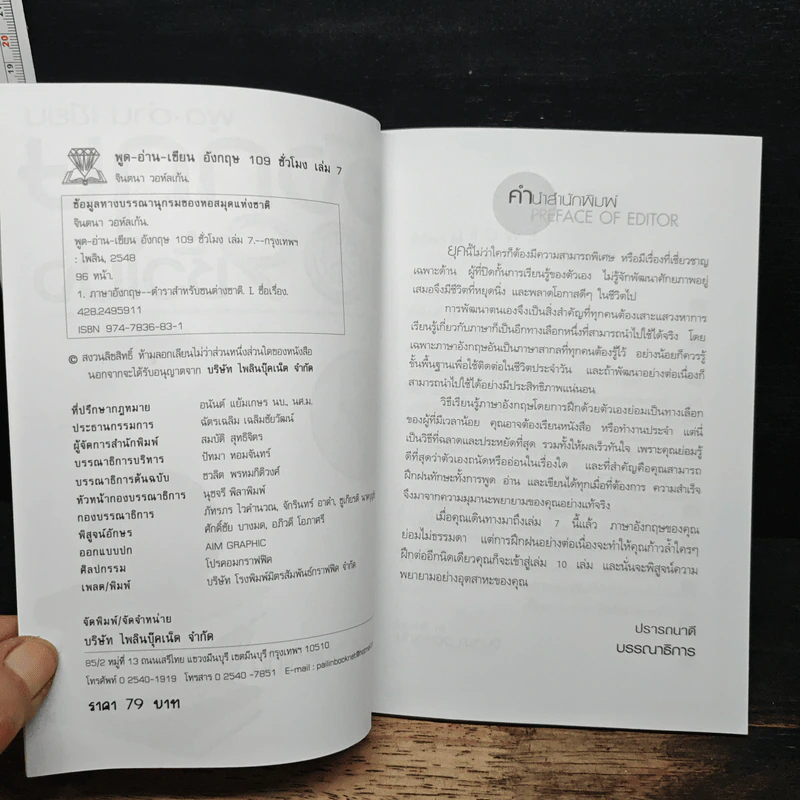 พูด-อ่าน-เขียน อังกฤษ 109 ชั่วโมง เล่ม 7
จินตนา วอห์ลเก้น.
ข้อมูลทางบรรณานุกรมของหอสมุดแห่งชาติ
จินตนา วอห์ลเก้น.
พูด-อ่าน-เขียน อังกฤษ 109 ชั่วโมง เล่ม 7.--กรุงเทพฯ
: ไพลิน, 2548
96 หน้า.
1. ภาษาอังกฤษ--ตำราสำหรับชนต่างชาติ. I. ชื่อเรื่อง.
428.2495911
ISBN 974-7836-83-1
© สงวนลิขสิทธิ์ ห้ามลอกเลียนไม่ว่าส่วนหนึ่งส่วนใดของหนังสือ
นอกจากจะได้รับอนุญาตจาก บริษัท ไพลินบุ๊คเน็ต จำกัด
ที่ปรึกษากฎหมาย อนันต์ แย้มเกษร นบ., นศ.ม.
ประธานกรรมการ ฉัตรเฉลิม เฉลิมชัยวัฒน์
ผู้จัดการสำนักพิมพ์ สมบัติ สุทธิจิตร
บรรณาธิการบริหาร ปัทมา หอมจันทร์
บรรณาธิการต้นฉบับ ชวลิต พรหมกิติวงศ์
หัวหน้ากองบรรณาธิการ นุชจรี พิลาพิมพ์
กองบรรณาธิการ ภัทรภร ไวคำนวณ, จักรินทร์ อาดำ, ชูเกียรติ
พิสูจน์อักษร ศักดิ์ชัย บางมด, อภิวดี โอภาศรี
ออกแบบปก AIM GRAPHIC
ศิลปกรรม โปรดอมกราฟฟิค
เพลต/พิมพ์ บริษัท โรงพิมพ์มิตรสัมพันธ์กราฟฟิค จำกัด
จัดพิมพ์/จัดจำหน่าย
บริษัท ไพลินบุ๊คเน็ต จำกัด
85/2 หมู่ที่ 13 ถนนเสรีไทย แขวงมีนบุรี เขตมีนบุรี กรุงเทพฯ 10510
โทรศัพท์ 0 2540-1919 โทรสาร 0 2540 -7851 E-mail : pailinbooknet@hotmail
ราคา 79 บาท
คำนำสำนักพิมพ์
PREFACE OF EDITOR
ยุคนี้ไม่ว่าใครก็ต้องมีความสามารถพิเศษ หรือมีเรื่องที่เชี่ยวชาญ
เฉพาะด้าน ผู้ที่ปิดกั้นการเรียนรู้ของตัวเอง ไม่รู้จักพัฒนาศักยภาพอยู่
เสมอจึงมีชีวิตที่หยุดนิ่ง และพลาดโอกาสดีๆ ในชีวิตไป
การพัฒนาตนเองจึงเป็นสิ่งสำคัญที่ทุกคนต้องเสาะแสวงหาการ
เรียนรู้เกี่ยวกับภาษาก็เป็นอีกทางเลือกหนึ่งที่สามารถนำไปใช้ได้จริง โดย
เฉพาะภาษาอังกฤษอันเป็นภาษาสากลที่ทุกคนต้องรู้ไว้ อย่างน้อยก็ควรรู้
ขั้นพื้นฐานเพื่อใช้ติดต่อในชีวิตประจำวัน และถ้าพัฒนาอย่างต่อเนื่องก็
สามารถนำไปใช้ได้อย่างมีประสิทธิภาพแน่นอน
วิธีเรียนรู้ภาษาอังกฤษโดยการฝึกด้วยตัวเองย่อมเป็นทางเลือก
ของผู้ที่มีเวลาน้อย คุณอาจต้องเรียนหนังสือ หรือทำงานประจำ แต่นี่
เป็นวิธีที่ฉลาดและประหยัดที่สุด รวมทั้งให้ผลเร็วทันใจ เพราะคุณย่อมรู้
ดีที่สุดว่าตัวเองถนัดหรืออ่อนในเรื่องใด และที่สำคัญคือคุณสามารถ
ฝึกฝนทักษะทั้งการพูด อ่าน และเขียนได้ทุกเมื่อที่ต้องการ ความสำเร็จ
จึงมาจากความมุมานะพยายามของคุณอย่างแท้จริง
เมื่อคุณเดินทางมาถึงเล่ม 7 นี้แล้ว ภาษาอังกฤษของคุณ
ย่อมไม่ธรรมดา แต่การฝึกฝนอย่างต่อเนื่องจะทำให้คุณก้าวล้ำใครๆ
ฝึกต่ออีกนิดเดียวคุณก็จะเข้าสู่เล่ม 10 เล่ม และนั่นจะพิสูจน์ความ
พยายามอย่างอุตสาหะของคุณ
ปรารถนาดี
บรรณาธิการ